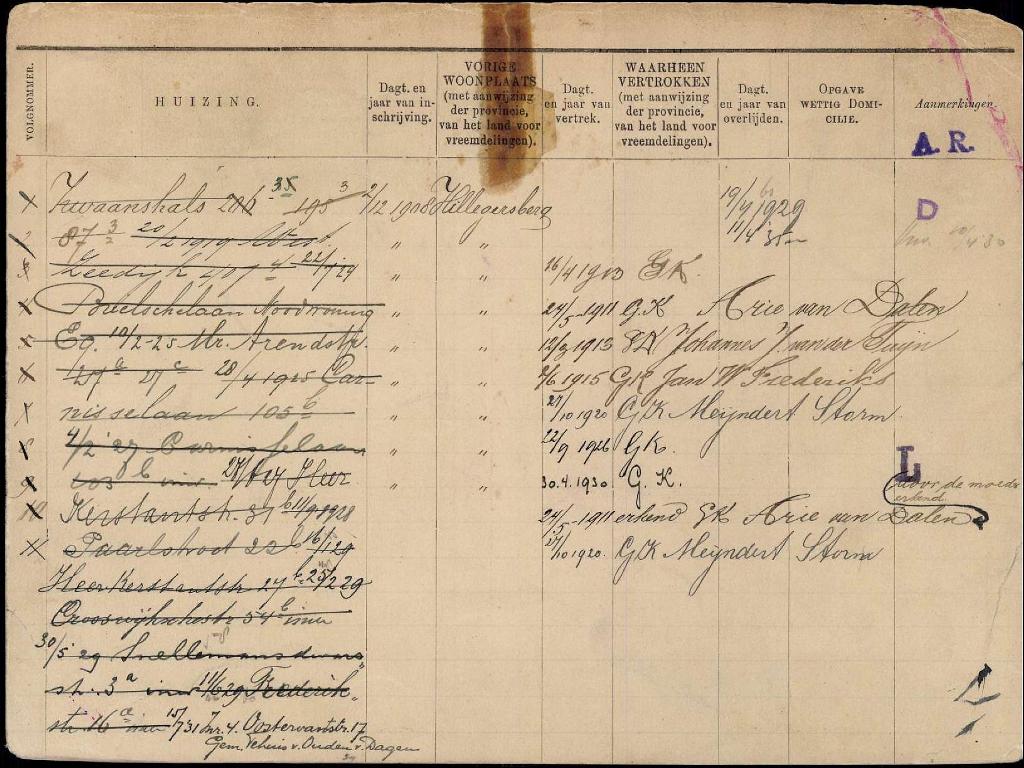 VOLGNOMMER.
HUIZING.
Dagt. en jaar van in-schrijving.
VORIGE WOONPLAATS (met aanwijzing der provincie, van het land voor vreemdelingen).
Dagt. en jaar van vertrek.
WAARHEEN VERTROKKEN (met aanwijzing der provincie, van het land voor vreemdelingen).
Dagt. en jaar van overlijden.
OPGAVE WETTIG DOMI-CILIE.
Aanmerkingen
A. R.
Zwaanshals 35 3 2/12 1908 Hillegersberg 19/4 1929 D
87 3 20/2 1919 West. " " 11/4
Zeedijk 22/1 24 " " 16/4 1913 G K.
Boelschelaan Noodwoning " " 24/5 - 1911 G. K Arie van Dalen
10/2-25 Mr. Arendstr. " " 12/3 1913 Johannes J. van der Tuijn
27 a 27 c 28/4 1925 Car- " " 2/6 1915 GK Jan W Frederiks
nisselaan 105 b " " 27/10 1920 G.K Meijndert Storm.
4/2 27 Carnisselaan " " 22/9 1926 G K.
103 b Heer " " 30.4.1930 G. K. L door de moeder erkend
Kerstantstr. 31 b 11/9 1928 24/5 - 1911 erkend GK Arie van Dalen
Paarlstraat 22 b 16/1 29 27/10 1920. G.K Meijndert Storm
Heer Kerstantstr 27 b 25/2 29
Crooswijkschestr 54 b inw
30/5 29 Snellemansdwars
str. 3 a inw 11/6 29 Frederik
str. 16 a inw 15/7 '31 Inr. 4. Oostervantstr. 17
Gem. Tehuis v. Ouden v. Dagen